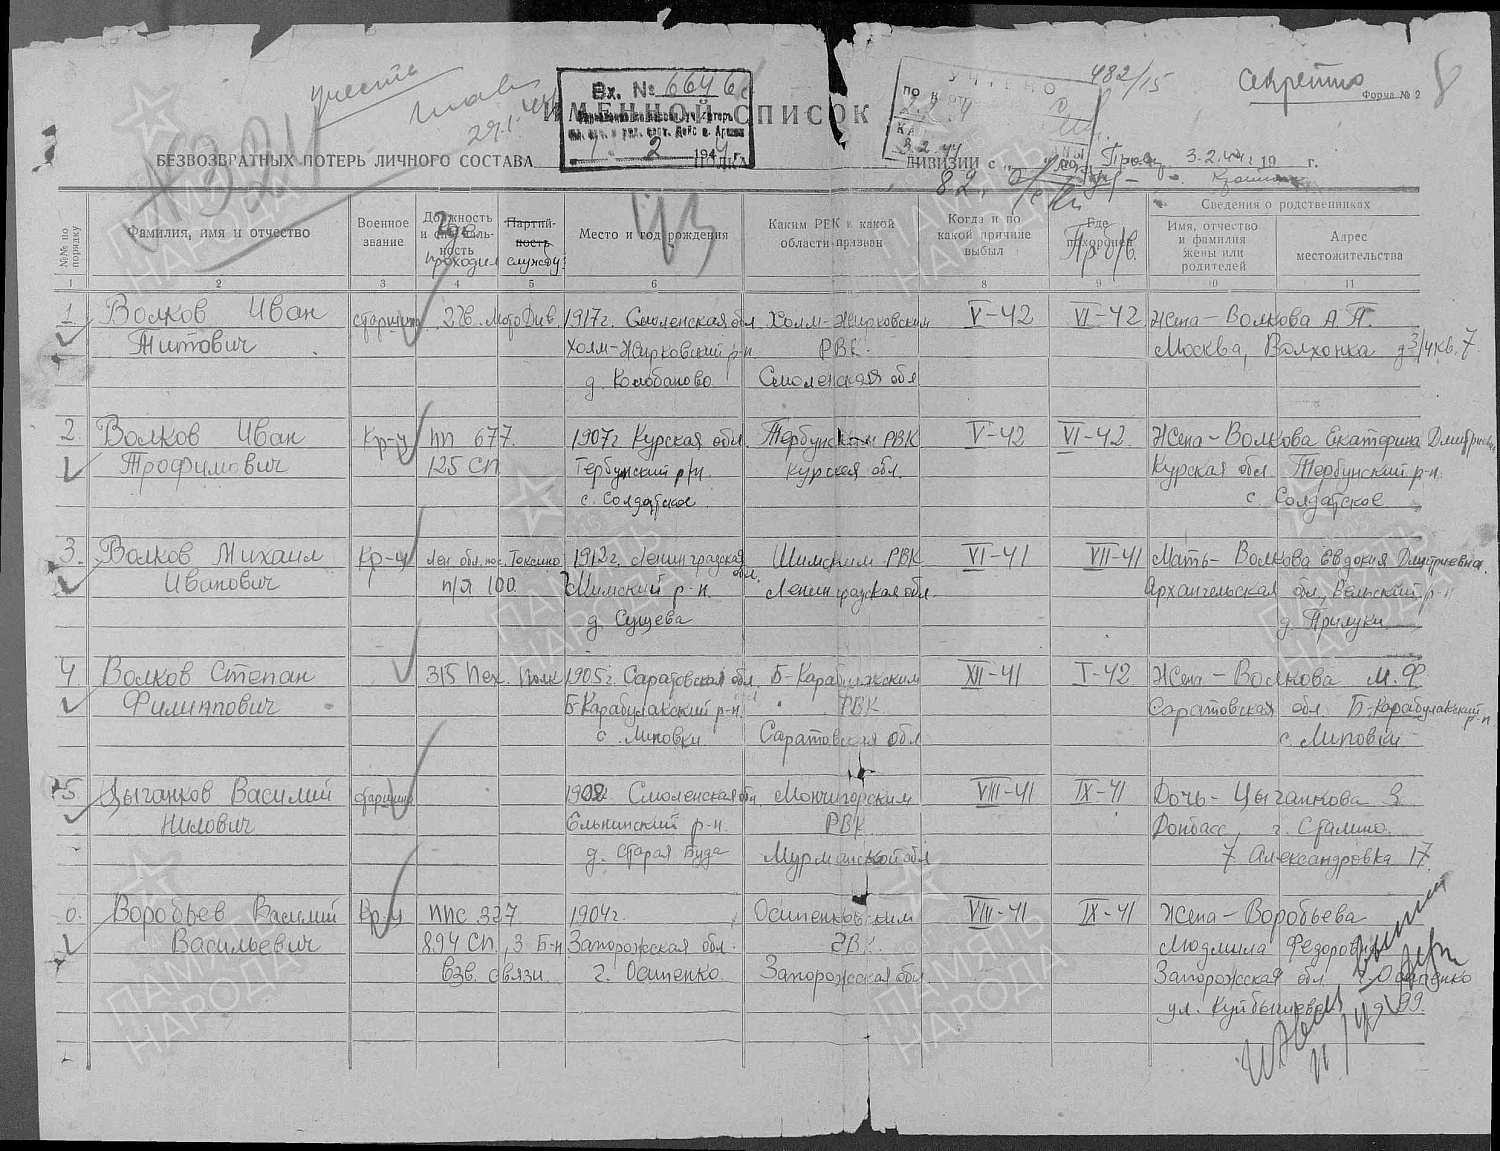 482/15
Секретно
Форма № 2
Вх. № 6646с
2 1944 г.
УЧТЕНО
3.2.44
29.1.44
ИМЕННОЙ СПИСОК
БЕЗВОЗВРАТНЫХ ПОТЕРЬ ЛИЧНОГО СОСТАВА ПОЛКА ДИВИЗИИ с " " по 3.2.44г 19 г.
№№ по порядку
Фамилия, имя и отчество
Военное звание
Должность и специальность
Где проходил
Партийность
службу
Место и год рождения
Каким РВК и какой области призван
Когда и по какой причине выбыл
Где похоронен
Пр б/в.
Сведения о родственниках
Имя, отчество и фамилия жены или родителей
Адрес местожительства
1 2 3 4 5 6 7 8 9 10 11
1 Волков Иван старшина 22в. МотоДив. 1917г. Смоленская обл. Холм-Жирковским V-42 VI-42 Жена-Волкова А.П.
Титович Холм-Жирковский р-н РВК. Москва, Волхонка д 3/4 кв. 7
д. Колобаново Смоленская обл
2. Волков Иван Кр-ц ПП 677. 1907г Курская обл. Тербунским РВК V-42 VI-42. Жена-Волкова Екатерина Дмитриевна
Трофимович 125 СП Тербунский р/н. Курская обл. Курская обл. Тербунский р-н.
с. Солдатское. с Солдатское
3. Волков Михаил Кр-ц Лен обл. пос. Токсино 1912г. Ленинградская обл. Шимским РВК VI-41 VII-41 Мать-Волкова Евдокия Дмитриевна.
Иванович п/я 100. Шимский р-н. Ленинградская обл. Архангельская обл, Вельский р-н
д. Сущева д. Прилуки
4 Волков Степан 315 Пех. Полк 1905г. Саратовская обл. Б-Карабулакским XII-41 I-42 Жена-Волкова М.Ф
Филиппович Б-Карабулакский р-н. РВК Саратовская обл Б-Карабулакский р-н.
с. Липовки Саратовская обл с. Липовки
5 Цыганков Василий старшина 1902 Смоленская обл Мончигорским VIII-41 IX-41 Дочь-Цыганкова З.
Нилович Ельнинский р-н. РВК Донбасс, г. Сталино.
д. Старая Буда Мурманской обл 7 Александровка 17.
6. Воробьев Василий Кр-ц ППС 327 1904г. Осипенковским VIII-41 IX-41 Жена-Воробьева
Васильевич 894 СП, 3 Б-н Запорожская обл. РВК. Людмила Федоровна
Взв. связи г. Осипенко Запорожская обл Запорожская обл г Осипенко
ул. Куйбышева д 99.